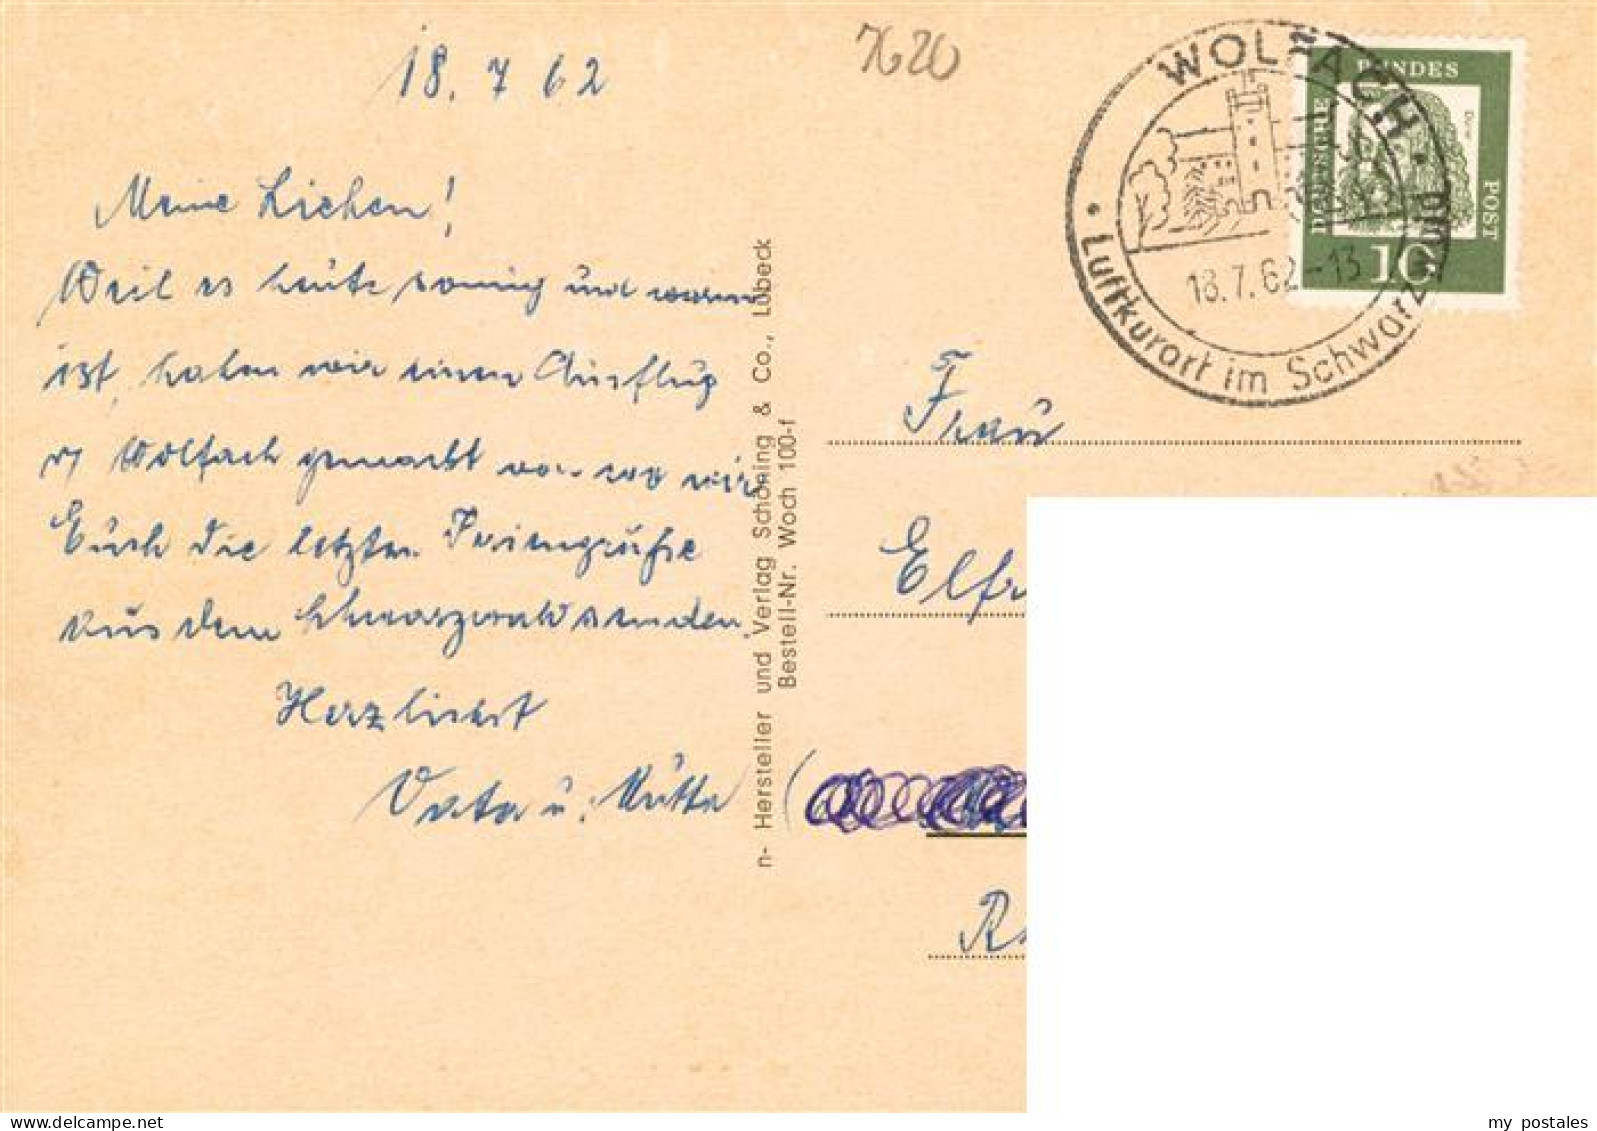 18. 7 62
Meine Lieben!
Weil es heute sonnig und warm
ist, haben wir einen Ausflug
n/ Wolfach gemacht von wo wir
Euch die letzten Feriengrüße
aus dem Schwarzwald senden.
Herzlichst
Vata u. Mutta
n- Hersteller und Verlag Schöning & Co., Lübeck
Bestell-Nr. Woch 100-f
7620
WOLFACH
18.7.62-13
Luftkurort im Schwarzwald
DEUTSCHE
BUNDES
POST
10
Frau
Elfr
my postales